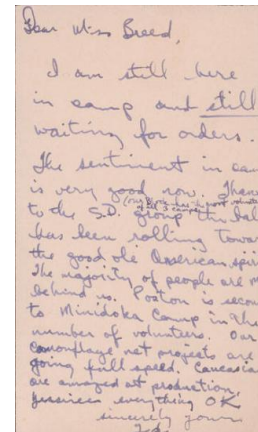 Dear Miss Breed,
I am still here
in camp and still
waiting for orders.
The sentiment in cam
is very good now. Than
to the S.D. group the bal
has been rolling towar
the good ole American spiri
The majority of people are
behind us. Poston is secon
to Minidoka Camp in the
number of volunteers. Our
camouflage net projects are
going full speed. Caucasia
are amazed at production.
everything OK
sincerely yours